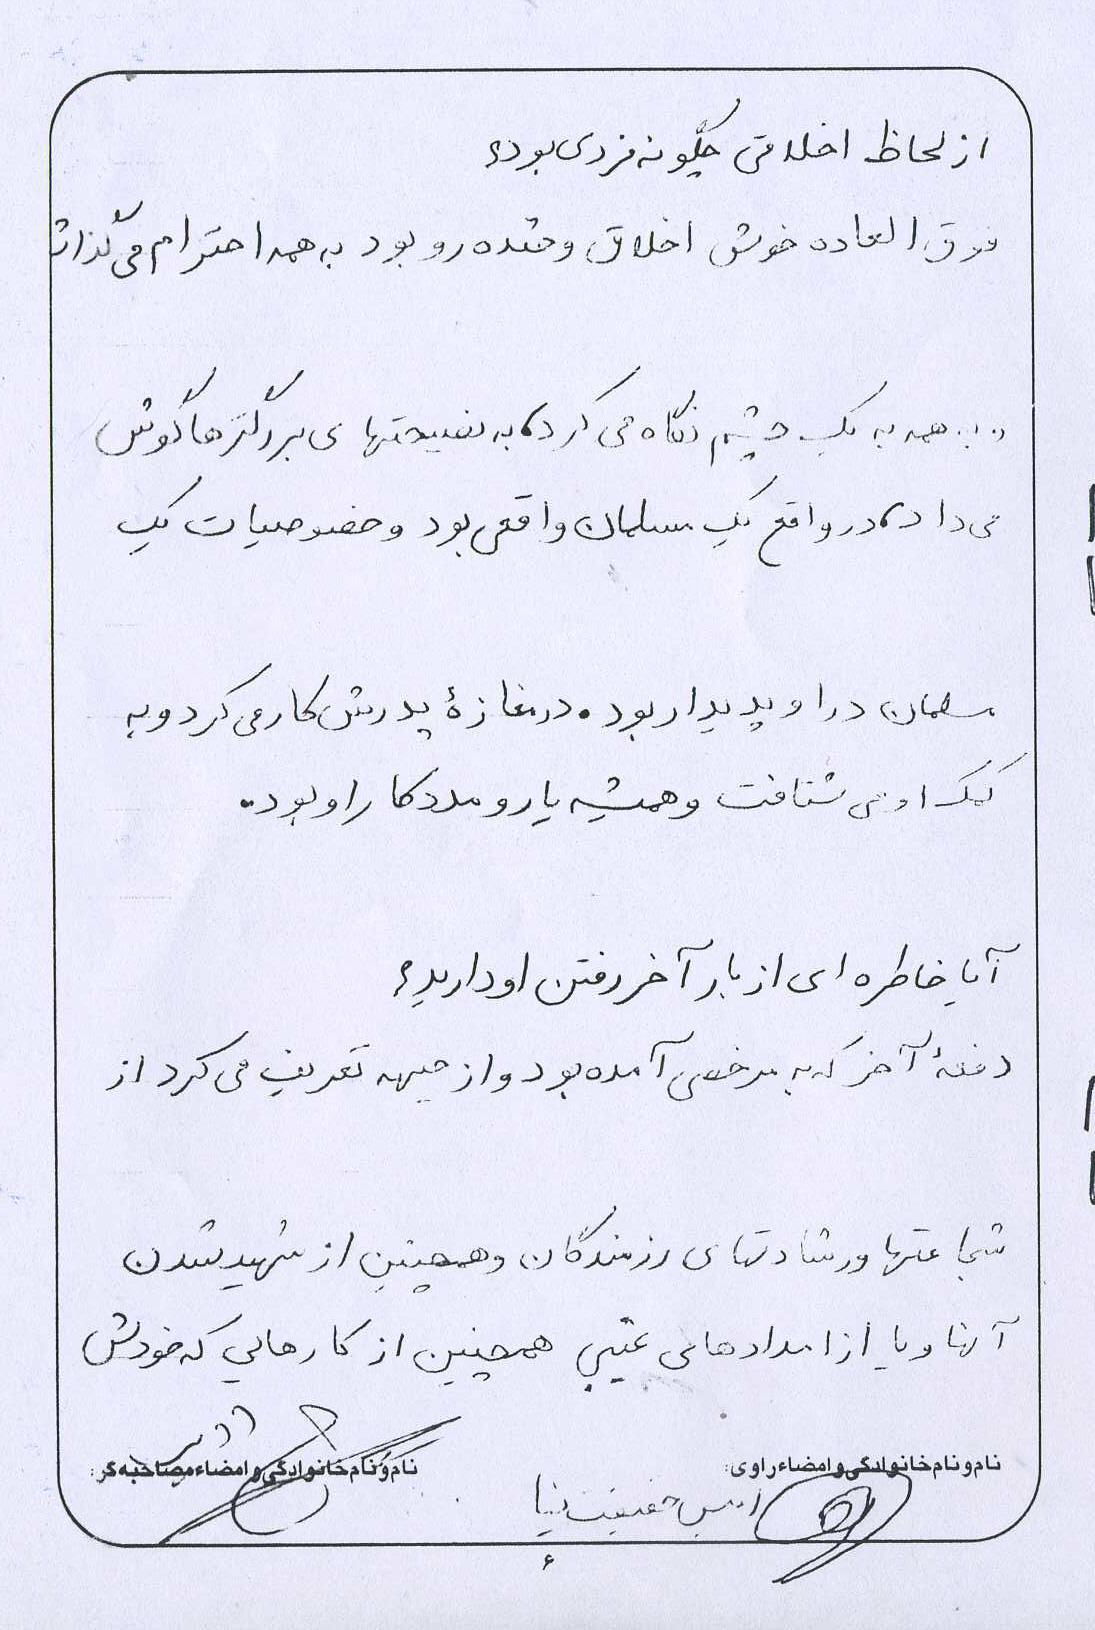 از لحاظ اخلاقی چگونه فردی بود؟
فوق العاده خوش اخلاق و خنده رو بود به همه احترام می گذاشت
و به همه به یک چشم نگاه می کرد، به نصیحتهای بزرگترها گوش
می داد، در واقع یک مسلمان واقعی بود و خصوصیات یک
مسلمان در او پدیدار بود. در مغازهٔ پدرش کار می کرد و به
کمک او می شتافت و همیشه یار و مددکار او بود.
آیا خاطره ای از بار آخر رفتن او دارید؟
دفعهٔ آخر که به مرخصی آمده بود و از جبهه تعریف می کرد از
شجاعتها و رشادتهای رزمندگان و همچنین از شهید شدن
آنها و یا از امدادهای غیبی همچنین از کارهایی که خودش
نام و نام خانوادگی و امضاء راوی:
نام و نام خانوادگی و امضاء مصاحبه گر:
حقیقت نیا
۶